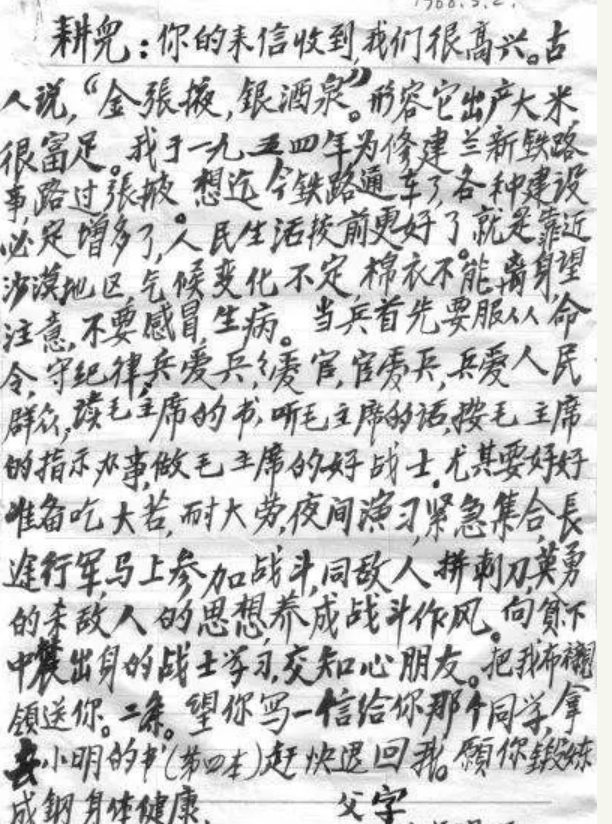 1968.3.2.
耕兒：你的来信收到，我们很高兴。古
人说，“金張掖，銀酒泉”。形容它出产大米，
很富足。我于一九五四年为修建兰新铁路
事，路过張掖。想近今铁路通车了，各种建设
必定增多了，人民生活按前更好了。就是靠近
沙漠地区，气候变化不定，棉衣不能离身，望
注意，不要感冒生病。当兵首先要服从命
令，守纪律，兵爱兵，爱官，官爱兵，兵爱人民
群众，读毛主席的书，听毛主席的话，按毛主席
的指示办事，做毛主席的好战士。尤其要好好
准备吃大苦，耐大劳，夜间演习，紧急集合，長
途行军，马上参加战斗，同敌人拼刺刀，英勇
的杀敌人的思想，养成战斗作风。向貧下
中农出身的战士学习，交知心朋友。把我布襯
領送你。二条。望你写一信给你那个同学，拿
去小明的书(第四本)赶快退回我。願你鍛炼
成鋼，身体健康。
父字